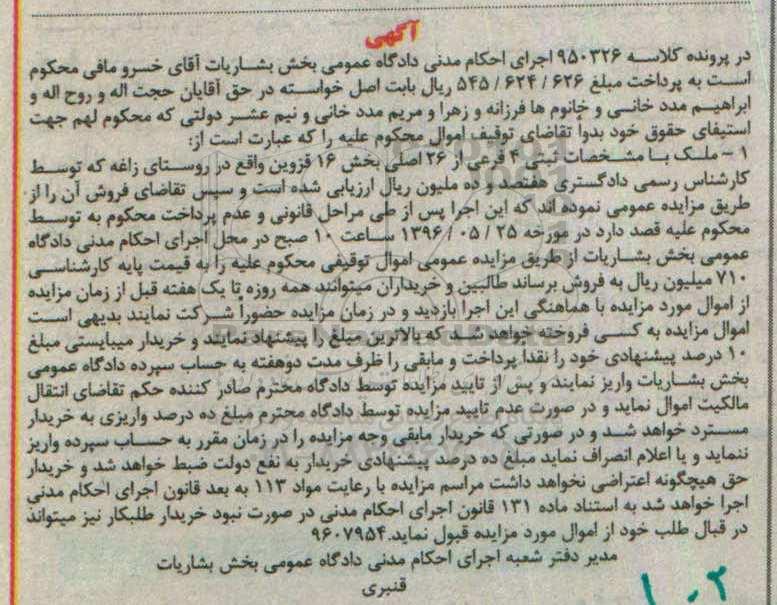 آگهی
در پرونده کلاسه ۹۵۰۳۲۶ اجرای احکام مدنی دادگاه عمومی بخش بشاریات آقای خسرو مافی محکوم
است به پرداخت مبلغ ۶۲۶ / ۶۲۴ / ۵۴۵ ریال بابت اصل خواسته در حق آقایان حجت اله و روح اله و
ابراهیم مدد خانی و خانوم ها فرزانه و زهرا و مریم مدد خانی و نیم عشر دولتی که محکوم لهم جهت
استیفای حقوق خود بدوأ تقاضای توقیف اموال محکوم علیه را که عبارت است از:
۱ – ملک با مشخصات ثبتی ۴ فرعی از ۲۶ اصلی بخش ۱۶ قزوین واقع در روستای زاغه که توسط
کارشناس رسمی دادگستری هفتصد و ده ملیون ریال ارزیابی شده است و سپس تقاضای فروش آن را از
طریق مزایده عمومی نموده اند که این اجرا پس از طی مراحل قانونی و عدم پرداخت محکوم به توسط
محکوم علیه قصد دارد در مورخه ۲۵ / ۰۵ / ۱۳۹۶ ساعت ۱۰ صبح در محل اجرای احکام مدنی دادگاه
عمومی بخش بشاریات از طریق مزایده عمومی اموال توقیفی محکوم علیه را به قیمت پایه کارشناسی
۷۱۰ میلیون ریال به فروش برساند طالبین و خریداران میتوانند همه روزه تا یک هفته قبل از زمان مزایده
از اموال مورد مزایده با هماهنگی این اجرا بازدید و در زمان مزایده حضوراً شرکت نمایند بدیهی است
اموال مزایده به کسی فروخته خواهد شد که بالاترین مبلغ را پیشنهاد نمایند و خریدار میبایستی مبلغ
۱۰ درصد پیشنهادی خود را نقدا پرداخت و مابقی را ظرف مدت دوهفته به حساب سپرده دادگاه عمومی
بخش بشاریات واریز نمایند و پس از تایید مزایده توسط دادگاه محترم صادر کننده حکم تقاضای انتقال
مالکیت اموال نماید و در صورت عدم تایید مزایده توسط دادگاه محترم مبلغ ده درصد واریزی به خریدار
مسترد خواهد شد و در صورتی که خریدار مابقی وجه مزایده را در زمان مقرر به حساب سپرده واریز
ننماید و یا اعلام انصراف نماید مبلغ ده درصد پیشنهادی خریدار به نفع دولت ضبط خواهد شد و خریدار
حق هیچگونه اعتراضی نخواهد داشت مراسم مزایده با رعایت مواد ۱۱۳ به بعد قانون اجرای احکام مدنی
اجرا خواهد شد به استناد ماده ۱۳۱ قانون اجرای احکام مدنی در صورت نبود خریدار طلبکار نیز میتواند
در قبال طلب خود از اموال مورد مزایده قبول نماید.۹۶۰۷۹۵۴
مدیر دفتر شعبه اجرای احکام مدنی دادگاه عمومی بخش بشاریات
قنبری
۱۰۲